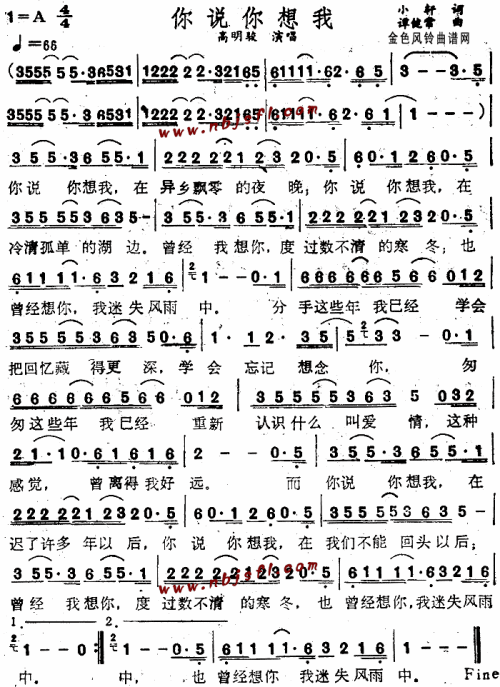 1=A 4/4 你说你想我 小轩 词
♩=66 高明骏 演唱 谭健常 曲
金色风铃曲谱网
(3555 5 5·36531 | 1222 2 2·32165 | 611 1 1·6 2·6 5 | 3 - - 3·5
3555 5 5·36531 | 1222 2 2·32165 | 611 1 1·6 2·6 1 | 1 - - - )
www.nbjsfl.com
3 5 5·3 6 5 5·1 | 2 2 2 2 2 1 2 3 2 0·5 | 6 0·1 2 6 0·5 |
你说 你想我,在 异乡飘零 的夜 晚;你 说 你想我,在
3 5 5 5 5 3 6 3 5 - | 3 5 5·3 6 5 5·1 | 2 2 2 2 2 1 2 3 2 0·5 |
冷清孤单 的湖 边。曾经 我想你,度过数不清 的寒 冬;也
6 1 1 1 1·6 3 2 1 6 | 1 - - 0·1 | 6 6 6 6 6 6 5 6 6 0 1 2 |
曾经想你,我迷失风雨 中。 分 手这些年 我已经 学会
3 5 5 5 5 3 6 3 5 0·6 | 1· 1 2· 3 5 | 5 3 3 - 0·1 |
把回忆藏 得更 深,学会 忘记 想念 你, 匆
6 6 6 6 6 6 6 5 6 6 0 1 2 | 3 5 5 5 5 3 3 6 5 0 5 1 |
匆这些年 我已经 重新 认识什么 叫爱 情,这种
2 1·1 0·6 1 6 1 6 | 2 - - 0·5 | 3 5 5·3 6 5 5·1 |
感觉, 曾离得我好 远。 而 你说 你想我, 在
2 2 2 2 2 1 2 3 2 0·5 | 6 0·1 2 6 0·5 | 3 5 5 5 5 3 6 3 5 |
迟了许多 年以 后,你 说 你想我,在 我们不能 回头以后;
3 5 5·3 6 5 5·1 | 2 2 2 2 2 1 2 3 2 0·5 | 6 1 1 1 1·6 3 2 1 6 |
www.nbjsfl.com
曾经 我想你,度 过数不清 的寒 冬,也 曾经想你,我迷失风雨
1. 2.
1 - - 0 :| 1 - - 0·5 | 6 1 1 1 1·6 3 2 1 6 | 1 - - 0 ‖
中。 中, 也 曾经想你 我迷失风雨 中。 Fine